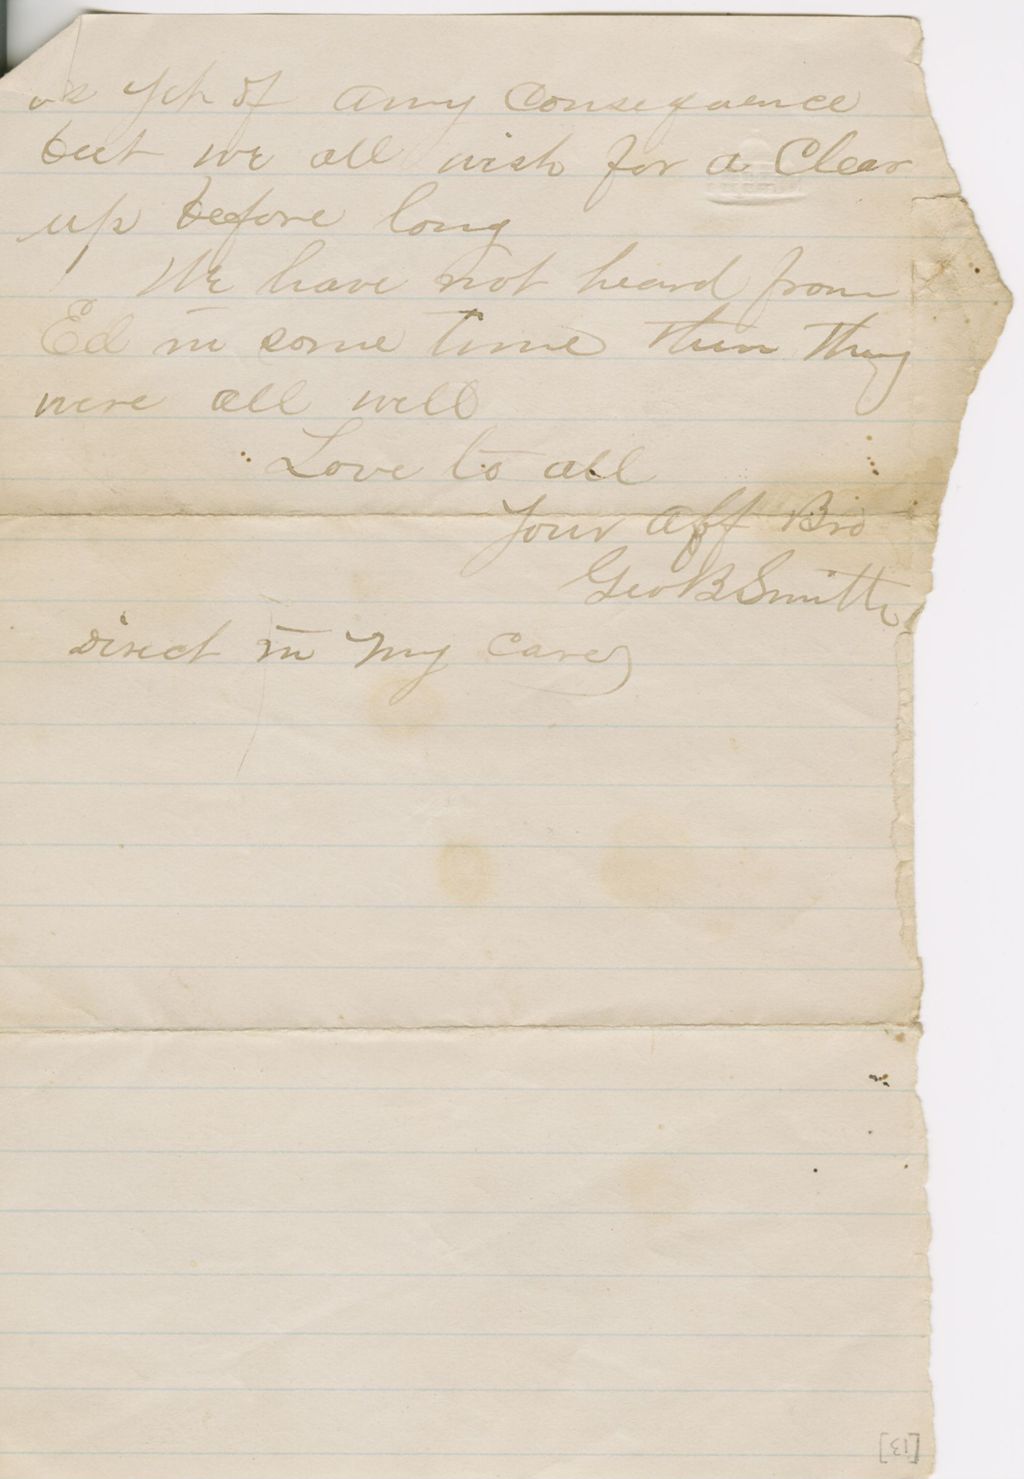 as yet of any Consequence
but we all wish for a Clear
up before long
We have not heard from
Ed in some time then they
were all well
Love to all
Your Aff Bro
Geo B Smith
Direct in my Care
[13]